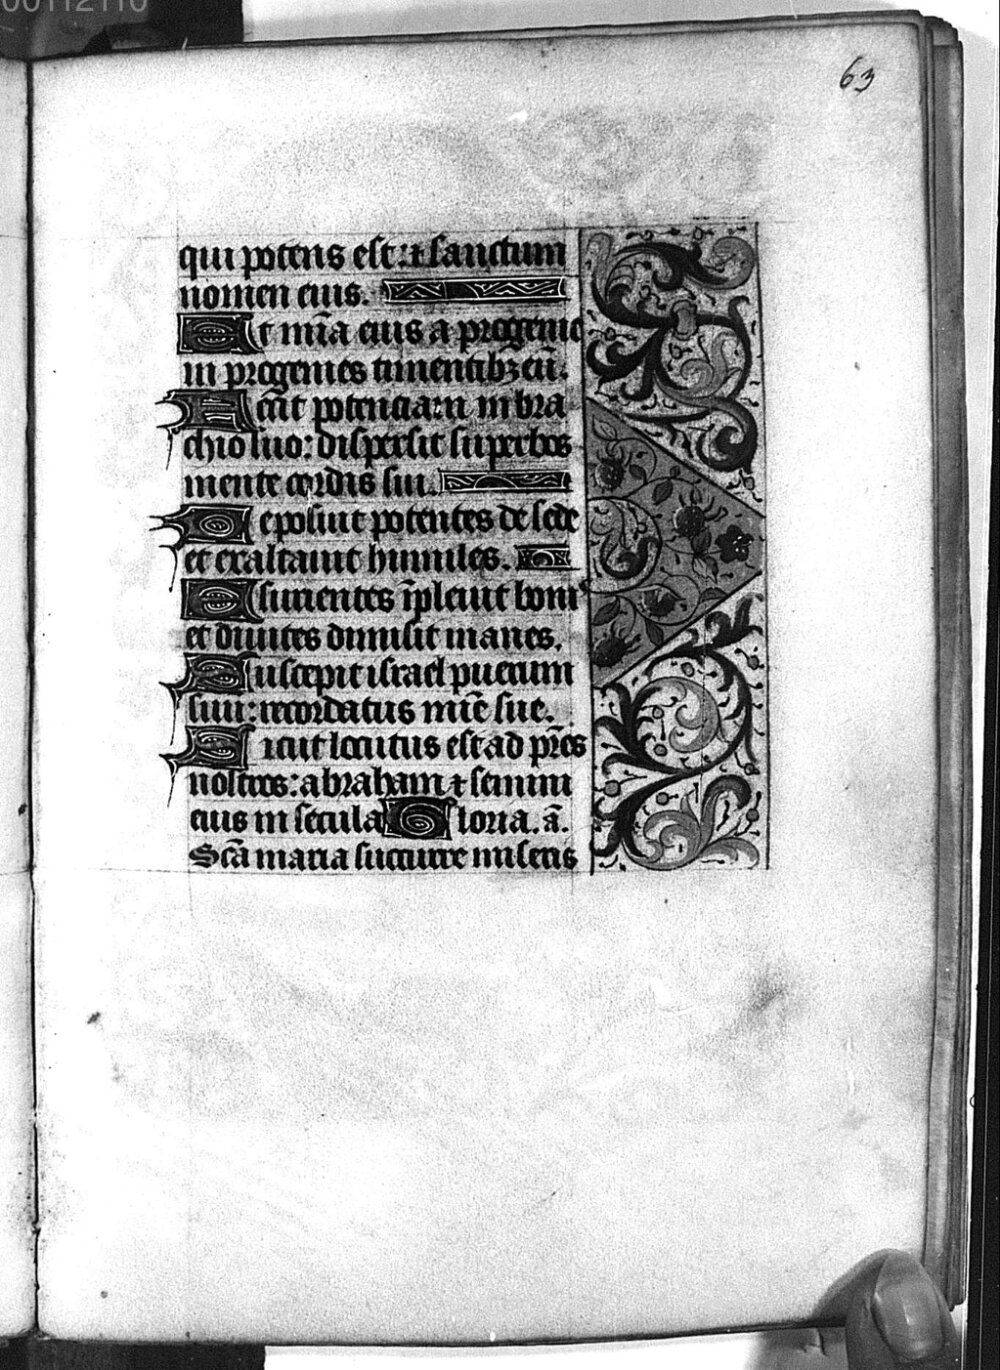 00112110
63
qui potens est: ⁊ sanctum
nomen eius.
Et mīa eius a progenie
in progenies timentibꝫ eū.
Fecit potentiam in bra
chio suo: dispersit superbos
mente cordis sui.
Deposuit potentes de sede
et exaltauit humiles.
Esurientes īpleuit boniˢ
et diuites dimisit inanes.
Suscepit israel puerum
suū: recordatus mīe sue.
Sicut locutus est ad p̄res
nostros: abraham ⁊ semini
eius in secula Gloria. ā.
Scā maria succurre miseris